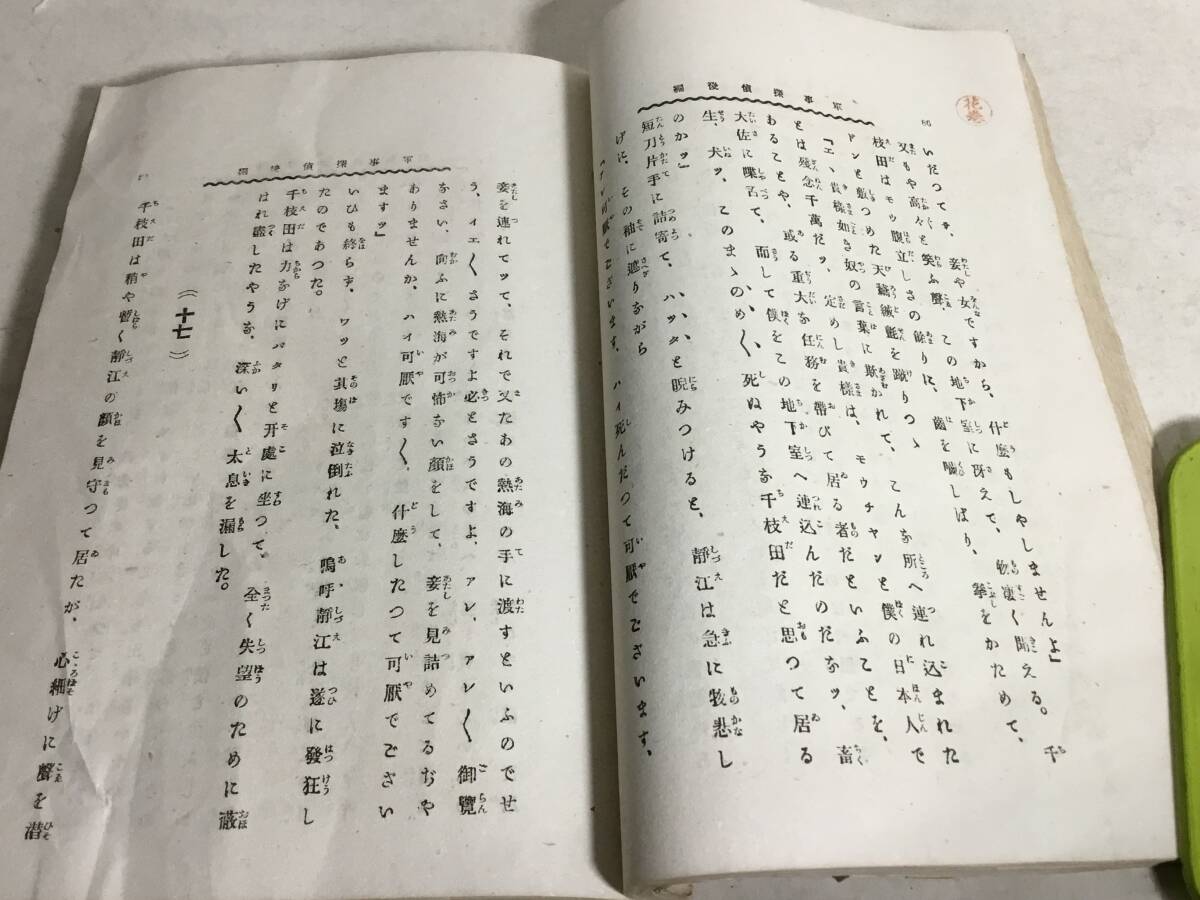 花巻
86
軍事探偵後編
いだつてサ、妾や女ですから、什麼もしやしませんよ」
又もや高々と笑ふ聲、この地下室に冴えて、物凄く聞える。千
枝田はモツ腹立しさの餘りに、齒を囓しばり、拳をかためて、
ドンと敷つめた天鵞絨氈を蹴りつゝ
「エヽ貴樣如き奴の言葉に欺かれて、こんな所へ連れ込まれた
とは殘念千萬だッ、定めし貴樣は、モウチヤンと僕の日本人で
あることや、或る重大な任務を帶びて居る者だといふことを、
大佐に喋名て、而して僕をこの地下室へ連込んだのだなッ、畜
生、犬ッ、このまゝのめ〱死ぬやうな千枝田だと思つて居る
のかッ」
短刀片手に詰寄て、ハ、ハッタと睨みつけると、靜江は急に物悲し
げに、その袖に遮りながら
ハイ可厭でございます、ハイ死んだつて可厭でございます、
軍事探偵後編
妾を連れてッて、それで又たあの熱海の手に渡すといふのでせ
う、イエ〱さうですよ必とさうですよ、アレ、アレ〱御覽
なさい、向ふに熱海が可怖ない顏をして、妾を見詰めてるぢや
ありませんか、ハイ可厭です〱、什麼したつて可厭でござい
ますッ」
いひも終らず、ワッと其塲に泣倒れた、嗚呼靜江は遂に發狂し
たのであつた。
千枝田は力なげにバタリと开處に坐つて、全く失望のために蔽
はれ盡したやうな、深い〱太息を漏した。
(十七)
千枝田は稍や暫く靜江の顏を見守つて居たが、心細げに聲を潛